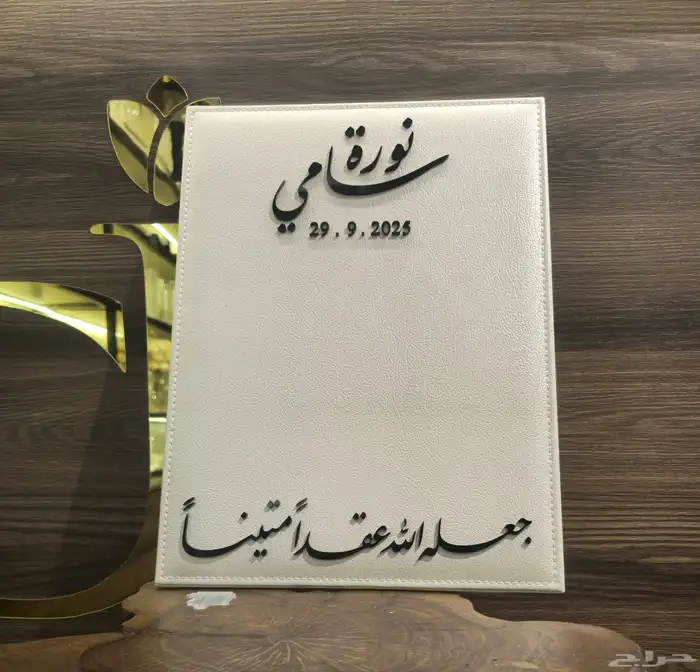 نورة
سامي
29 . 9 . 2025
جعله الله عقداً متيناً
حراج